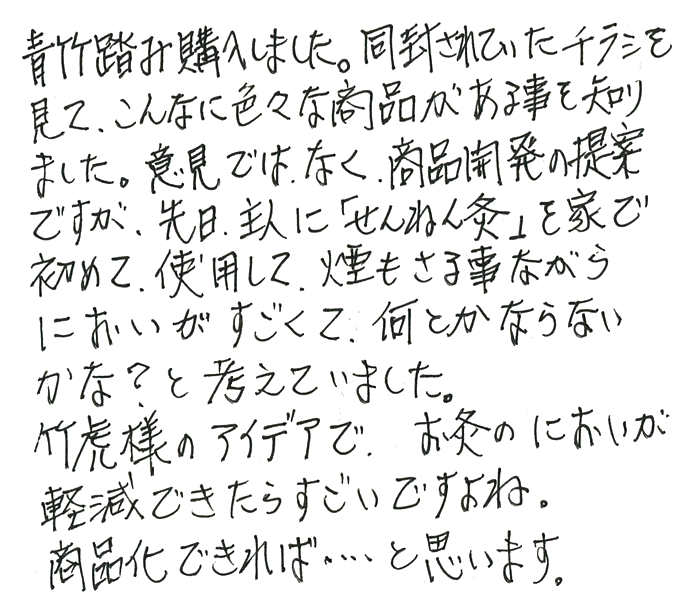 青竹踏み購入しました。同封されていたチラシを
見て、こんなに色々な商品がある事を知り
ました。意見では、なく、商品開発の提案
ですが、先日、主人に「せんねん灸」を家で
初めて、使用して、煙もさる事ながら
においがすごくて、何とかならない
かな?と考えていました。
竹虎様のアイデアで、お灸のにおいが
軽減できたらすごいですよね。
商品化できれば・・・・と思います。